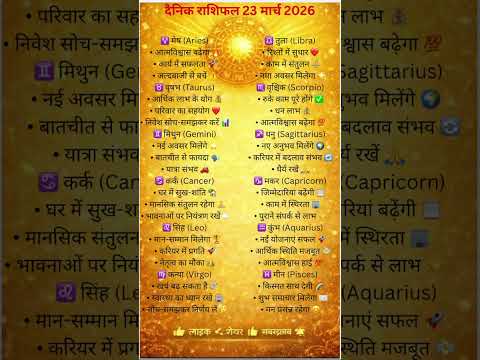 दैनिक राशिफल 23 मार्च 2026
♈ मेष (Aries)
• आत्मविश्वास बढ़ेगा
• कार्य में सफलता 🚀
• जल्दबाजी से बचें
♉ वृषभ (Taurus)
• आर्थिक लाभ के योग 💰
• परिवार का सहयोग ❤️
• निवेश सोच-समझकर करें 📊
♊ मिथुन (Gemini)
• नई अवसर मिलेंगे
• बातचीत से फायदा 🗣️
• यात्रा संभव 🚗
♋ कर्क (Cancer)
• घर में सुख-शांति 🏡
• मानसिक संतुलन रहेगा
• भावनाओं पर नियंत्रण रखें
♌ सिंह (Leo)
• मान-सम्मान मिलेगा 🏆
• करियर में प्रगति 🚀
• नेतृत्व का मौका
♍ कन्या (Virgo)
• खर्च बढ़ सकता है 💸
• स्वास्थ्य का ध्यान रखें
• सोच-समझकर निर्णय लें
♎ तुला (Libra)
• रिश्तों में सुधार ❤️
• काम में संतुलन
• नया अवसर मिलेगा
♏ वृश्चिक (Scorpio)
• रुके काम पूरे होंगे ✅
• धन लाभ 💰
• आत्मविश्वास बढ़ेगा 💯
♐ धनु (Sagittarius)
• नए अनुभव मिलेंगे 🌍
• करियर में बदलाव संभव 🔄
• धैर्य रखें 🙏
♑ मकर (Capricorn)
• जिम्मेदारियां बढ़ेंगी
• काम में स्थिरता 🏢
• पुराने संपर्क से लाभ
♒ कुंभ (Aquarius)
• नई योजनाएं सफल 🚀
• आर्थिक स्थिति मजबूत
• आत्मविश्वास हाई 💯
♓ मीन (Pisces)
• किस्मत साथ देगी
• शुभ समाचार मिलेगा
• मन प्रसन्न रहेगा
👍 लाइक शेयर 👍 सबस्क्राइब
• परिवार का
निवेश सोच-समझ
♊ मिथुन (Gemi
• नई अवसर
• बातचीत से
• यात्रा संभव
♋ कर्क (Canc
• घर में सुख-शां
• मानसिक संतुलन
भावनाओं पर नियं
♌ सिंह (Le
• मान-सम्मान मि
• करियर में प्र
लाभ 💰
बढ़ेगा 💯
agittarius)
मिलेंगे 🌍
लाव संभव 🔄
रखें 🙏
apricorn)
रियां बढ़ेंगी
स्थिरता 🏢
र्क से लाभ
Aquarius)
नाएं सफल 🚀
ति मजबूत